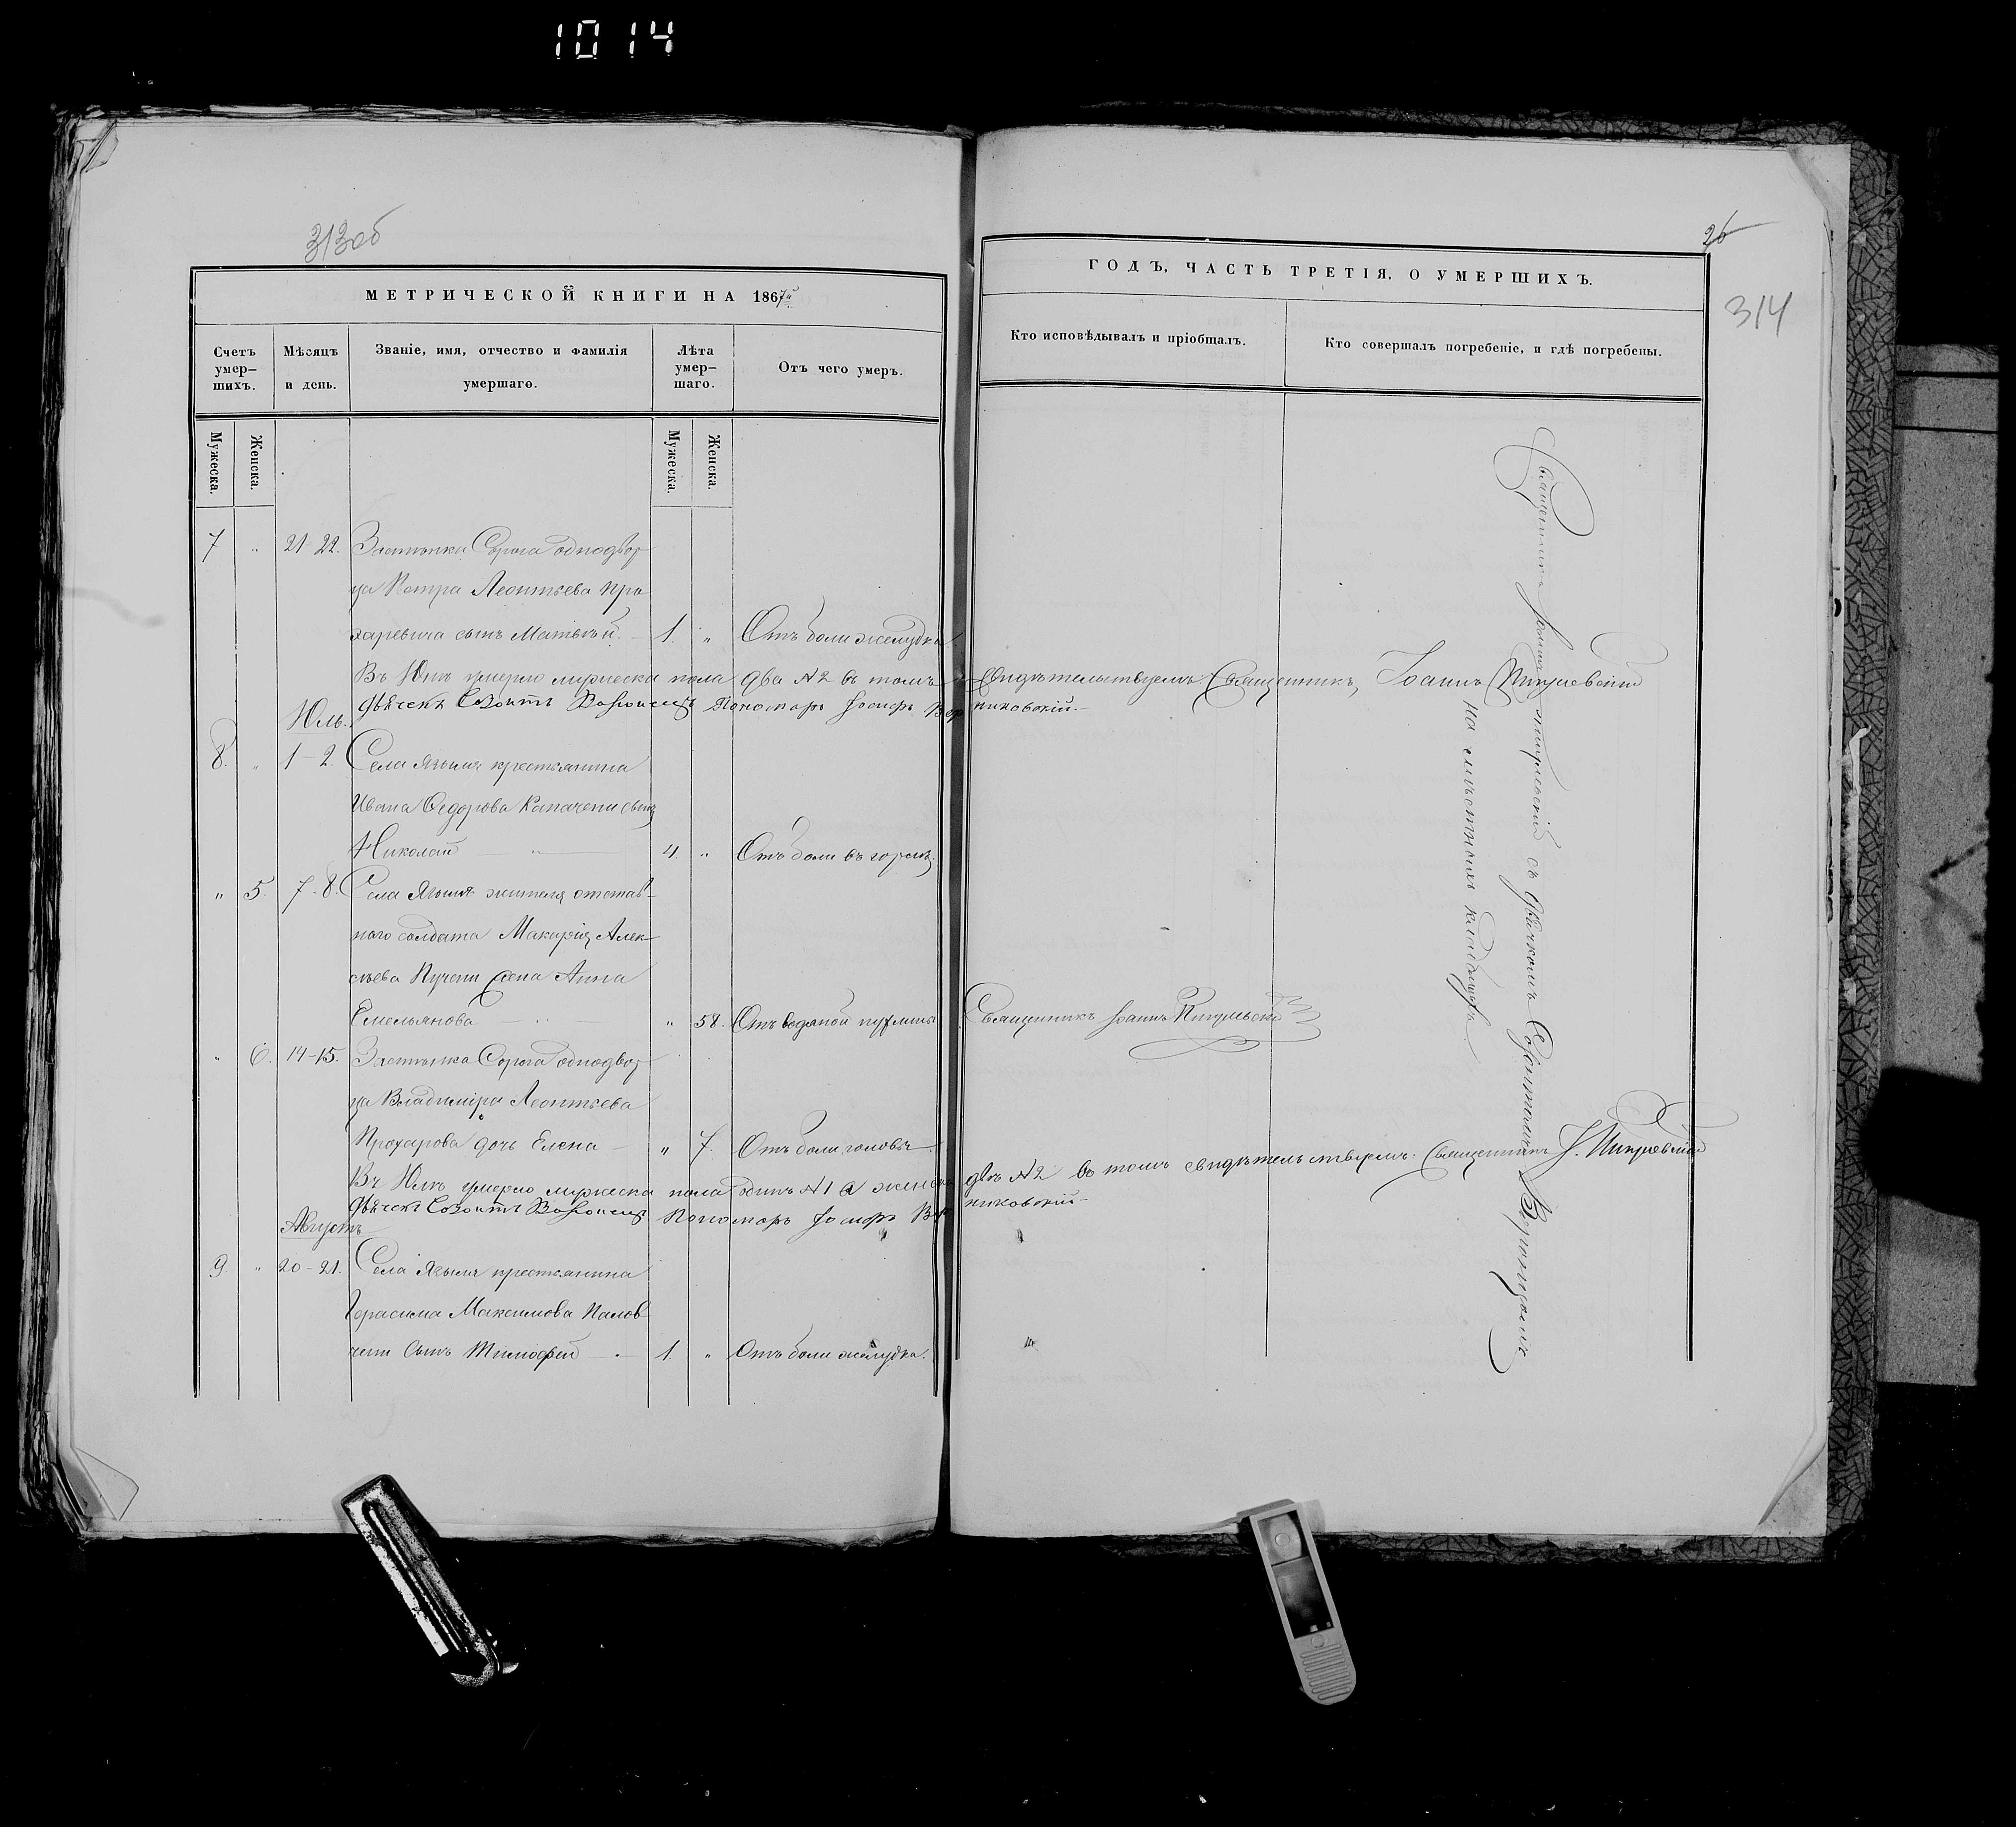 1014
313об
МЕТРИЧЕСКОЙ КНИГИ НА 1867й
Счетъ умер-шихъ.
Мѣсяцъ и день.
Званіе, имя, отчество и фамилія умершаго.
Лѣта умер-шаго.
Отъ чего умеръ.
Мужеска.
Женска.
Мужеска.
Женска.
7 " 21-22. Застѣнка Сорога однодвор
ца Петра Леонтьева Про
харевича сынъ Матвѣй. 1. " Отъ боли желудка
Въ Юнѣ умерло мужеска пола два №2 въ томъ
Дьячекъ Созонтъ Пономарь Іосифъ
Юль.
8. " 1-2. Села Языля крестьянина
Ивана Ѳедорова Капачени сынъ
Николай " 4. " Отъ боли въ горлѣ.
" 5. 7-8. Села Языля жителя отстав-
наго солдата Макарія Алек-
сѣева Пучени жена Анна
Емельянова " 58. Отъ водяной пухлины
" 6. 14-15. Застѣнка Сорога однодвор
ца Владиміра Леонтьева
Прохарова дочь Елена " 7. Отъ боли головы.
Въ Юлѣ умерло мужеска пола одинъ №1 а женска
Дьячекъ Созонтъ Пономарь Іосифъ
Августъ
9 " 20-21. Села Языля крестьянина
Герасима Максимова Палов
чени сынъ Тимофей 1. " Отъ боли желудка.
26
314
ГОДЪ, ЧАСТЬ ТРЕТІЯ, О УМЕРШИХЪ.
Кто исповѣдывалъ и пріобщалъ.
Кто совершалъ погребеніе, и гдѣ погребены.
Свидѣтельствуемъ: Священникъ, Іоаннъ
никовскій.
Священникъ Іоаннъ
двѣ №2 въ томъ свидѣтельствуемъ: Священникъ І.
никовскій
Священникъ Іоаннъ съ дьячкомъ Созонтомъ
на мѣстномъ кладбищѣ.